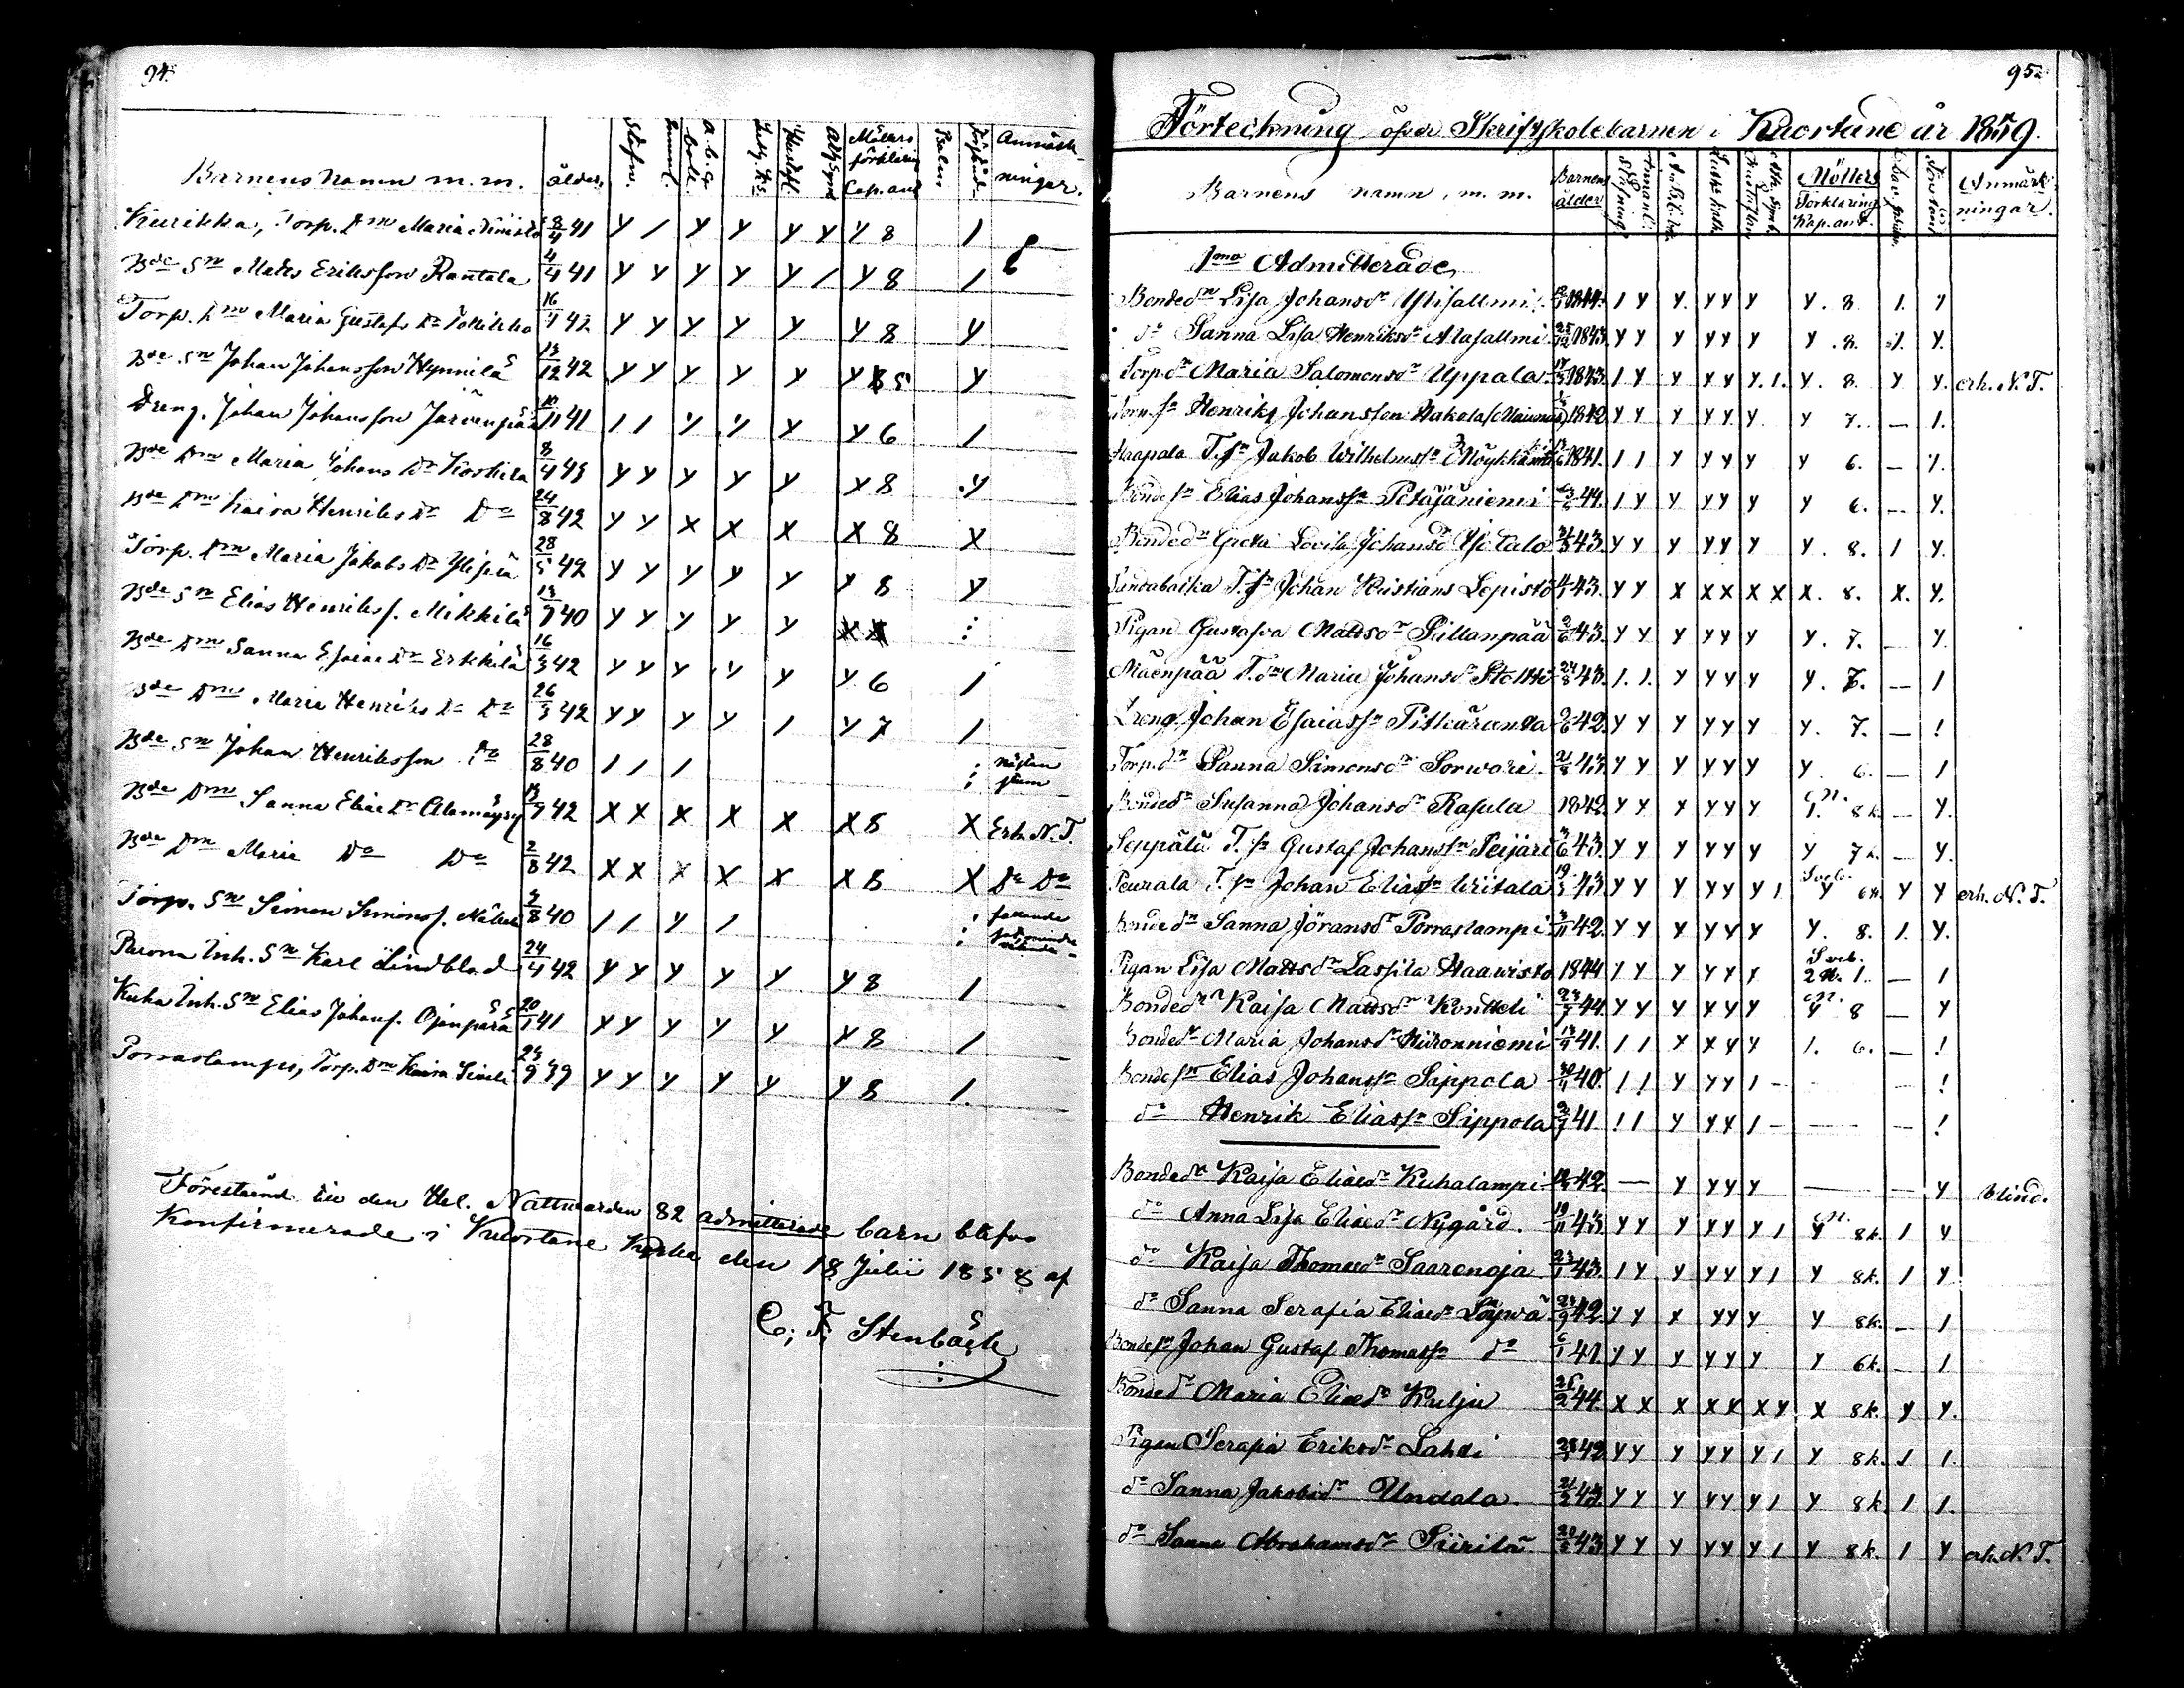 94.
Barnens namn m.m. ålder. Stafn. Innanl. a.b.c. bok. Luth. Ks. Hustafl. Ath. Symb. Möllers förklaring Cap. ant. Förstånd. Anmärkningar.
Kurikka, Torp. Dr Maria 8/4 41 y / y y y y y 8 1
Bde Sn Matts Eriksson Rantala 4/4 41 y y y y y / y 8 1
Torp. Dr Maria Gustafs Dr 16/1 42 y y y y y y 8 y
Bde Sn Johan Johansson Hynnilä 13/12 42 y y y y y y 5 y
Dreng. Johan Johansson Järvenpää 10/11 41 / / y y y y 6 1
Bde Dr Maria Johans Dr Koskela 8/4 43 y y y y y x 8 y
Bde Dr Kaisa Henriks Dr Do 24/8 42 y y x x x x 8 x
Torp. Dr Maria Jakobs Dr 28/5 42 y y y y y y 8 y
Bde Sn Elias Henrikss. Mikkilä 13/7 40 y y y y y
Bde Dr Sanna Esaiæ Dr Erkkilä 16/3 42 y y y y y y 6 1
Bde Dr Maria Henriks Dr Do 26/3 42 y y y y / y 7 1
Bde Sn Johan Henriksson Do 28/8 40 / / / nästan
Bde Dr Sanna Eliæ Dr Alamäyry 13/7 42 x x x x x x 8 x Erh. N.T.
Bde Dr Maria Do Do 2/8 42 x x x x x x 8 x Do Do
Torp. Sn Simon Simonss. 2/8 40 / / y /
Inh. Sn Karl Lindblad 24/4 42 y y y y y y 8 1
Kuha Inh. Sn Elias Johans. Ojanpää 20/1 41 y y y y y y 8 1
Porraslampi, Torp. Dr Kaisa 23/9 39 y y y y y y 8 1.
den Hel. Nattvarden 82 admitterade barn blefvo
Konfirmerade i Kuortane Kyrka den 18 Julii 1858 af
C. F. Stenbäck
95.
Förteckning öfver Skriftskolebarnen i Kuortane år 1859.
Barnens namn, m. m. Barnens ålder Stafning Innanl. Luth. kath. Hustaflan Ath. Symb. Möllers Förklaring Kap. ant. Förstånd Anmärkningar.
1mo Admitterade
Bonded. Lisa Johansdr Ylisallmi 1844. 1 y y. y y y y. 8. 1. y
do Sanna Lisa Henriksdr Alasallmi 25/12 1843. y y y y y y y. 8. 1. y.
Torp.dr Maria Salomonsdr Uppala 17/3 1843. 1 y y y y y. 1. y. 8. y y. erh. N. T.
Henrik Johansson Hakola 1842 y y y y y y y 7. — 1.
Haapala T.sn Jakob Wilhelmsn 1841. 1 1 y y y y y 6. — 1.
Bondesn Elias Johanssn Petäjäniemi 44. 1 y y y y y y 6. — y.
Bondedr Greta Lovisa Johansdr Iso Talo 31/3 43. y y y y y y y. 8. 1 y.
T.sn Johan Kristians Lepistö 4/1 43. y y x x x x x x. 8. x. y.
Pigan Gustafva Mattsdr Pillanpää 2/6 43. y y y y y y y. 7. — y.
Mäenpää T.dr Maria Johansdr 24/8 43. 1. 1. y y y y y. — 1
Dreng. Johan Esaiassn Pitkäranta 2/6 42. y y y y y y y. 7. — 1
Torp.dr Sanna Simonsdr Sorwari. 21/8 43. y y y y y y y 6. — 1
Bondedr Susanna Johansdr Rasula 1842. y y y y y y 8 k. — y.
Seppälä T.sn Gustaf Johanssn Peijari 3/6 43. y y y y y y y 7 k. — y.
Peurala T.sn Johan Eliassn Writala 19/3 43 y y y y y y 1 y 6 k. y y erh. N. T.
Bondedr Sanna Jöransdr Porraslampi 3/11 42. y y y y y y y. 8. 1. y.
Pigan Lisa Mattsdr Lassila Haawisto 1844 y y y y y y Sveb. — 1
Bondedr Kaisa Mattsdr Kontteli 23/7 44. y y y y y y y 8 — y
Bondedr Maria Johansdr Hironniemi 13/9 41. 1 1 y x y y 1. 6. — 1
Bondesn Elias Johanssn Sippola 30/11 40. 1 1 y y y 1 - — 1
do Henrik Eliassn Sippola 41 1 1 y y y 1 - — — 1
Bondedr Kaisa Eliædr Kuhalampi 42. — y y y y — — y blind.
do Anna Lisa Eliædr Nygård. 19/11 43 y y y y y y 1 y 8k. 1 y
do Kaisa Thomædr Saarenoja 23/1 43. 1 y y y y y 1 y 8k. 1 y
do Sanna Serafia Eliædr 24/9 42. y y x y y y y 8k. — 1
Bondesn Johan Gustaf Thomassn do 6/1 41. y y y y y y y 6k. — 1
Bondedr Maria Eliædr Kulju 26/2 44. x x x x x x y x 8k. y y.
Pigan Serafia Eriksdr Lahti 42 y y y y y y 1 y 8k. 1 1.
do Sanna Jakobsdr Undala. 21/2 43. y y y y y y 1 y 8k 1 1.
do Sanna Abrahamsdr Piirilä 43 y y y y y y 1 y 8k. 1 y erh. N. T.